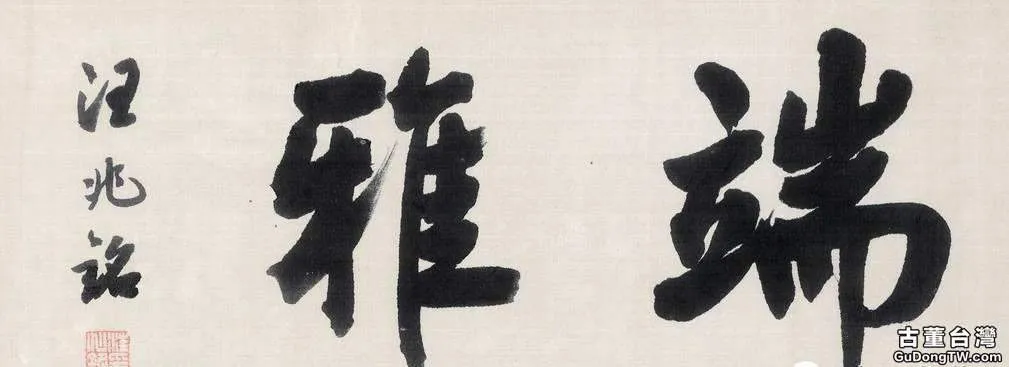 端雅
汪兆銘
古董台灣
GuDongTW.com